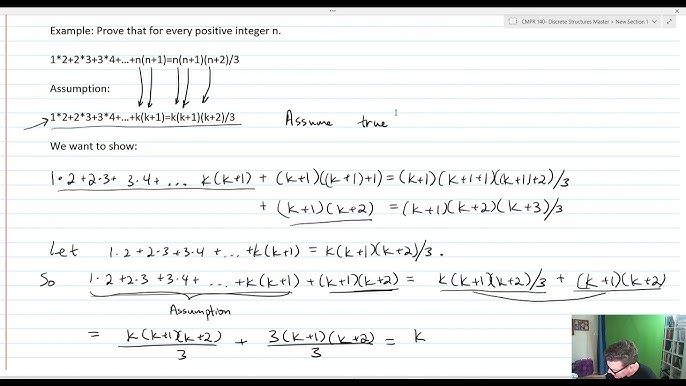 CMPR 140- Discrete Structures Master > New Section 1
Example: Prove that for every positive integer n.
1*2+2*3+3*4+...+n(n+1)=n(n+1)(n+2)/3
Assumption:
1*2+2*3+3*4+...+k(k+1)=k(k+1)(k+2)/3 Assume true
We want to show:
1·2+2·3+ 3·4+ ... k(k+1) + (k+1)((k+1)+1) = (k+1)(k+1+1)((k+1)+2)/3
+ (k+1)(k+2) = (k+1)(k+2)(k+3)/3
Let 1·2+2·3+3·4 + ... +k(k+1) = k(k+1)(k+2)/3.
So 1·2+2·3+3·4+ ... +k(k+1)+(k+1)(k+2) = k(k+1)(k+2)/3 + (k+1)(k+2)
Assumption
= k(k+1)(k+2)/3 + 3(k+1)(k+2)/3 = k